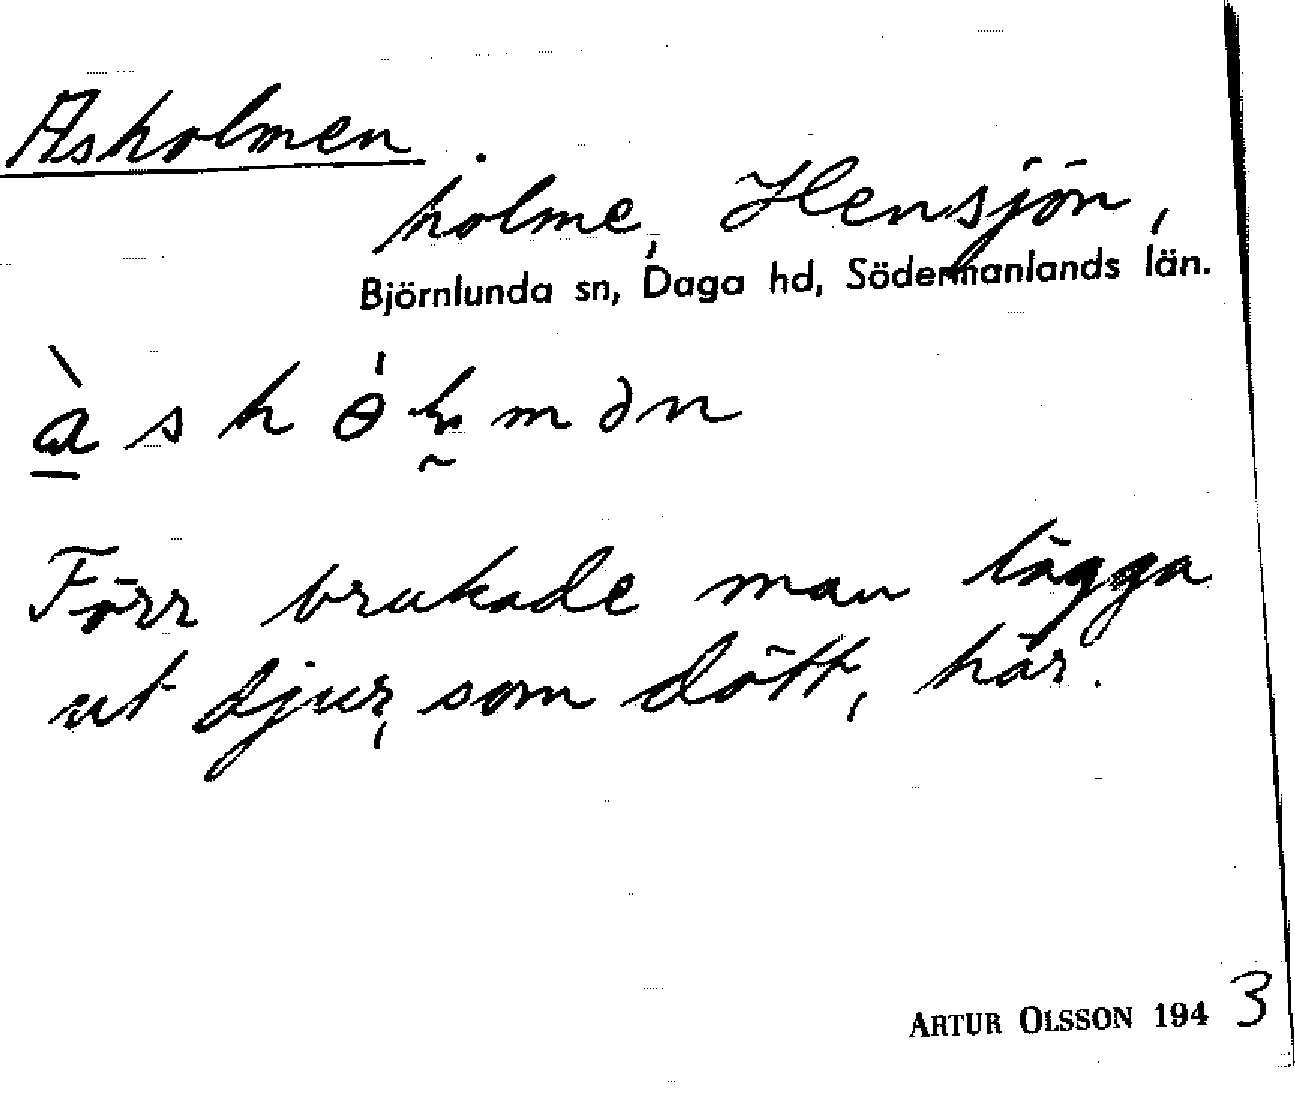 Asholmen.
holme, Hensjön,
Björnlunda sn, Daga hd, Södermanlands län.
Förr brukade man lägga
ut djur, som dött, här.
ARTUR OLSSON 1943